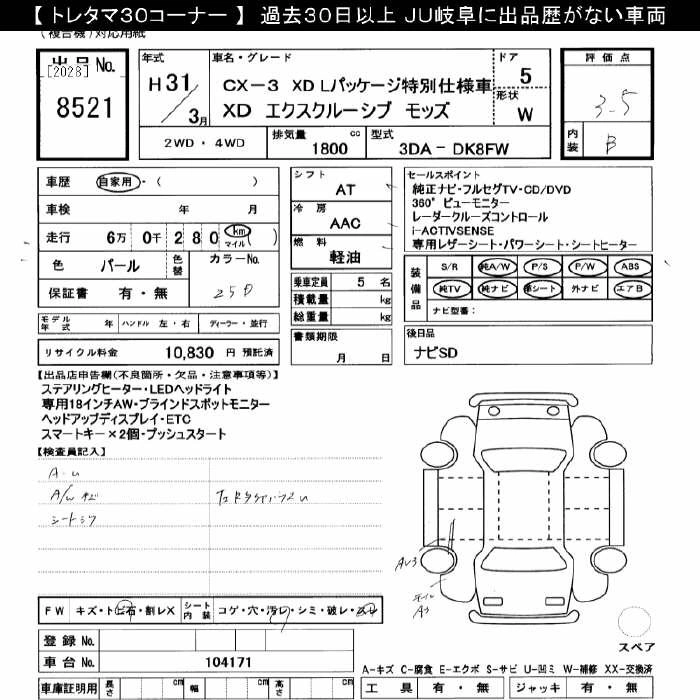 【 トレタマ30コーナー 】 過去30日以上 JU岐阜に出品歴がない車両
(複合機)対応用紙
出品No.
[2028]
8521
年式
H 31
3月
車名・グレード
CX-3 XD Lパッケージ特別仕様車
XD エクスクルーシブ モッズ
ドア
5
形状
W
評価点
3-5
内装
B
2WD・4WD
排気量 cc
1800
型式
3DA-DK8FW
車歴 自家用・( )
車検 年 月
走行 6万 0千 2 8 0 km マイル ( )
色 パール 色替 カラーNo.
保証書 有・無 25D
シフト
AT
冷房
AAC
燃料
軽油
乗車定員 5 名
積載量 kg
総重量 kg
セールスポイント
純正ナビ・フルセグTV・CD/DVD
360° ビューモニター
レーダークルーズコントロール
i-ACTIVSENSE
専用レザーシート・パワーシート・シートヒーター
装備品
S/R 純A/W P/S P/W ABS
純TV 純ナビ 革シート 外ナビ エアB
ナビ型番:
モデル年式 年 ハンドル 左・右 ディーラー・並行
リサイクル料金 10,830 円 預託済
書類期限
月 日
後日品
ナビSD
【出品店申告欄(不良箇所・欠品・注意事項等)】
ステアリングヒーター・LEDヘッドライト
専用18インチAW・ブラインドスポットモニター
ヘッドアップディスプレイ・ETC
スマートキー×2個・プッシュスタート
【検査員記入】
A-U
A/W キズ
シートシワ
AU3
A3
FW キズ・トビ石・割レX シート内装 コゲ・穴・汚レ・シミ・破レ・スレ
登録No.
車台No. 104171
車庫証明用 長さ cm 幅 cm 高さ cm
スペア
A-キズ C-腐食 E-エクボ S-サビ U-凹ミ W-補修 XX-交換済
工具 有・無 ジャッキ 有・無